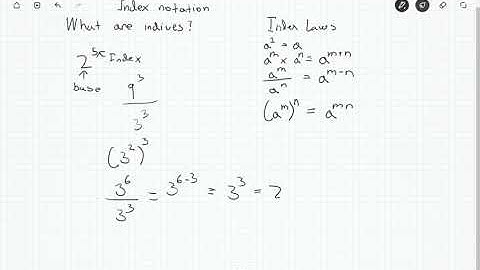 Index notation
What are indives?
2^5x Index
base
9^3
3^3
(3^2)^3
3^6/3^3 = 3^6-3 = 3^3 = 2
Index Laws
a^1 = a
a^m x a^n = a^m+n
a^m/a^n = a^m-n
(a^m)^n = a^mn